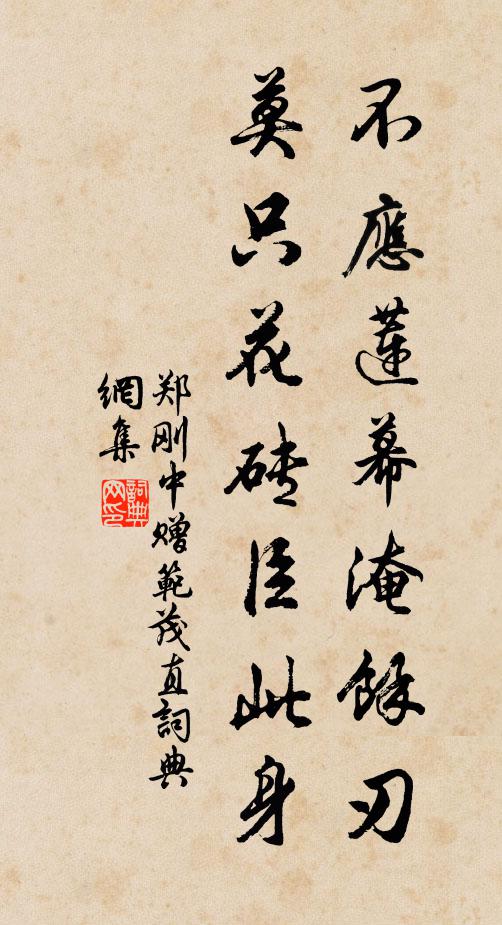 不應蓮幕淹餘刃
莫只花磚臣此身
郑刚中赠範茂直詞典
網集
詞典
网印